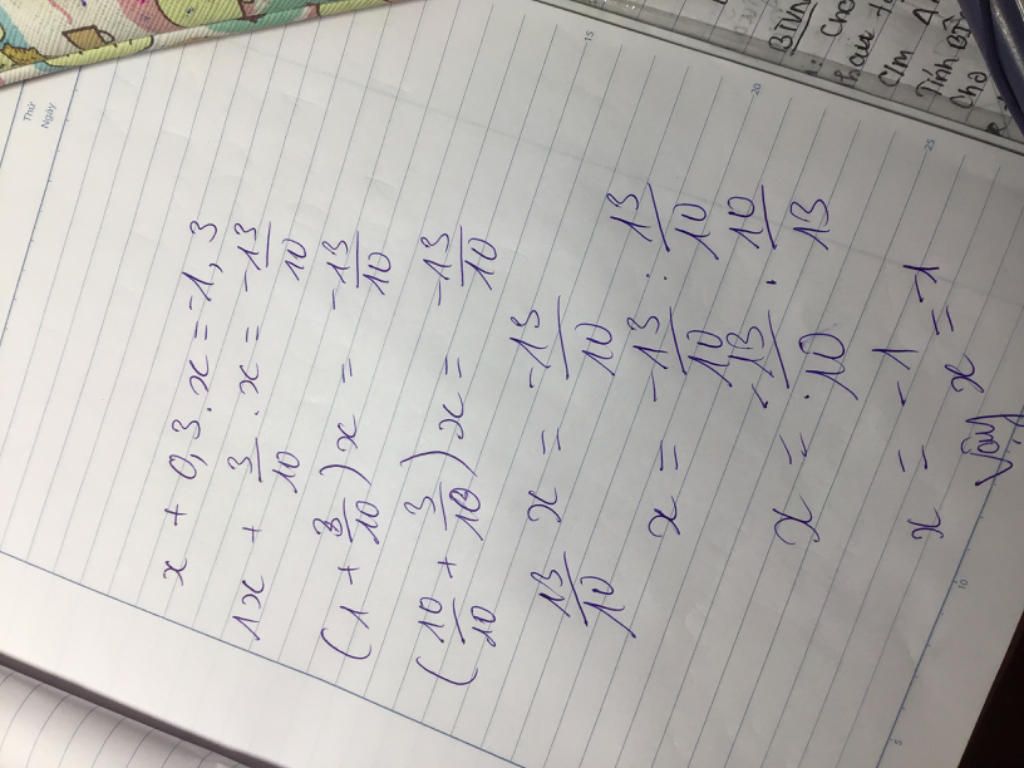 Thứ
Ngày
x + 0,3.x = -1,3
1x + 3/10 .x = -13/10
(1 + 3/10)x = -13/10
(10/10 + 3/10)x = -13/10
13/10 x = -13/10
x = -13/10 : 13/10
x = -13/10 . 10/13
x = -1
Vậy x = -1
5
10
15
20
25
Cho
Tính
Cho